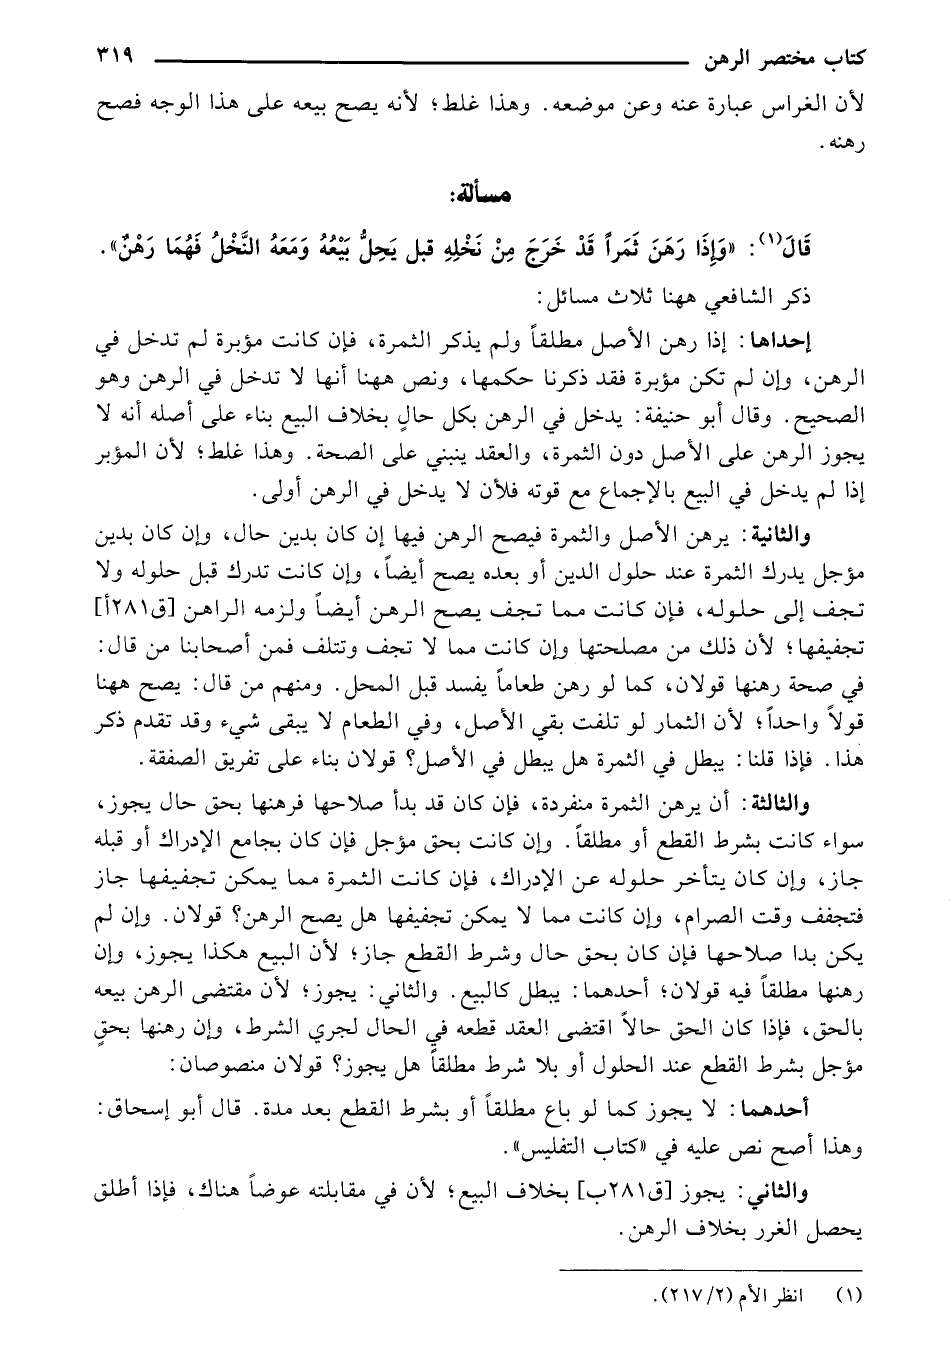 كتاب مختصر الرهن ٣١٩
لأن الغراس عبارة عنه وعن موضعه. وهذا غلط؛ لأنه يصح بيعه على هذا الوجه فصح
رهنه.
مسألة:
قَالَ(١): «وَإِذَا رَهَنَ ثَمَراً قَدْ خَرَجَ مِنْ نَخْلِهِ قبل يَحِلُّ بَيْعُهُ وَمَعَهُ النَّخْلُ فَهُمَا رَهْنٌ».
ذكر الشافعي ههنا ثلاث مسائل:
إحداها: إذا رهن الأصل مطلقاً ولم يذكر الثمرة، فإن كانت مؤبرة لم تدخل في
الرهن، وإن لم تكن مؤبرة فقد ذكرنا حكمها، ونص ههنا أنها لا تدخل في الرهن وهو
الصحيح. وقال أبو حنيفة: يدخل في الرهن بكل حالٍ بخلاف البيع بناء على أصله أنه لا
يجوز الرهن على الأصل دون الثمرة، والعقد ينبني على الصحة. وهذا غلط؛ لأن المؤبر
إذا لم يدخل في البيع بالإجماع مع قوته فلأن لا يدخل في الرهن أولى.
والثانية: يرهن الأصل والثمرة فيصح الرهن فيها إن كان بدين حال، وإن كان بدين
مؤجل يدرك الثمرة عند حلول الدين أو بعده يصح أيضاً، وإن كانت تدرك قبل حلوله ولا
تجف إلى حلوله، فإن كانت مما تجف يصح الرهن أيضاً ولزمه الراهن [ق٢٨١أ]
تجفيفها؛ لأن ذلك من مصلحتها وإن كانت مما لا تجف وتتلف فمن أصحابنا من قال:
في صحة رهنها قولان، كما لو رهن طعاماً يفسد قبل المحل. ومنهم من قال: يصح ههنا
قولاً واحداً؛ لأن الثمار لو تلفت بقي الأصل، وفي الطعام لا يبقى شيء وقد تقدم ذكر
هذا. فإذا قلنا: يبطل في الثمرة هل يبطل في الأصل؟ قولان بناء على تفريق الصفقة.
والثالثة: أن يرهن الثمرة منفردة، فإن كان قد بدأ صلاحها فرهنها بحق حال يجوز،
سواء كانت بشرط القطع أو مطلقاً. وإن كانت بحق مؤجل فإن كان بجامع الإدراك أو قبله
جاز، وإن كان يتأخر حلوله عن الإدراك، فإن كانت الثمرة مما يمكن تجفيفها جاز
فتجفف وقت الصرام، وإن كانت مما لا يمكن تجفيفها هل يصح الرهن؟ قولان. وإن لم
يكن بدا صلاحها فإن كان بحق حال وشرط القطع جاز؛ لأن البيع هكذا يجوز، وإن
رهنها مطلقاً فيه قولان؛ أحدهما: يبطل كالبيع. والثاني: يجوز؛ لأن مقتضى الرهن بيعه
بالحق، فإذا كان الحق حالاً اقتضى العقد قطعه في الحال لجري الشرط، وإن رهنها بحقٍ
مؤجل بشرط القطع عند الحلول أو بلا شرط مطلقاً هل يجوز؟ قولان منصوصان:
أحدهما: لا يجوز كما لو باع مطلقاً أو بشرط القطع بعد مدة. قال أبو إسحاق:
وهذا أصح نص عليه في «كتاب التفليس».
والثاني: يجوز [ق٢٨١ب] بخلاف البيع؛ لأن في مقابلته عوضاً هناك، فإذا أطلق
يحصل الغرر بخلاف الرهن.
(١) انظر الأم (٢/٢١٧).